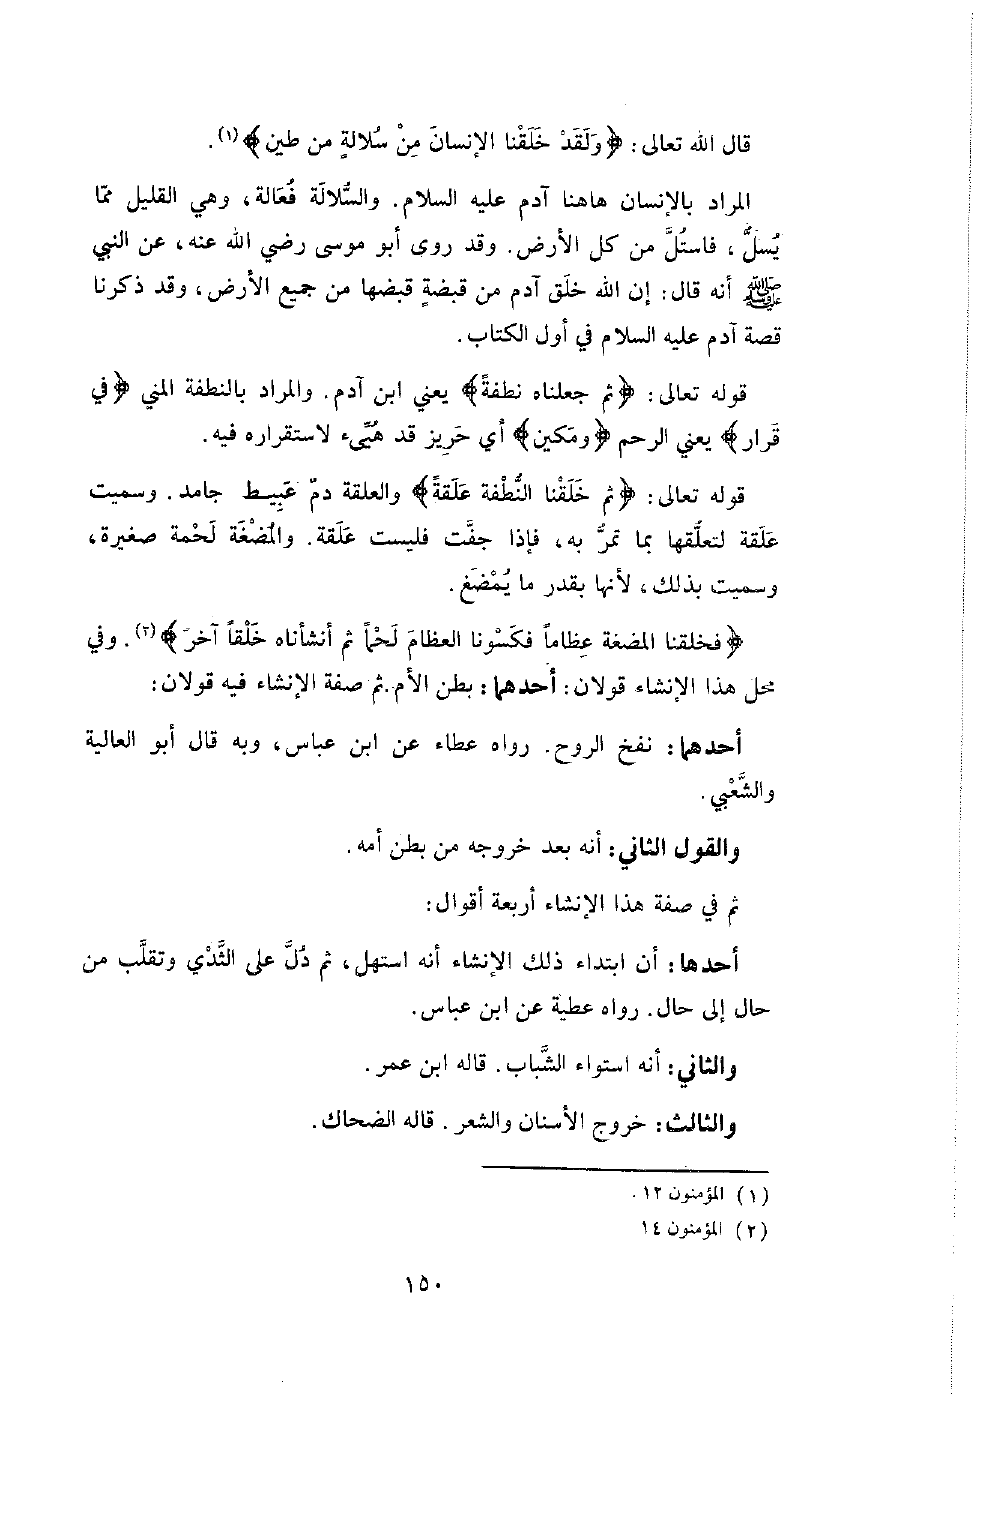 قال الله تعالى: ﴿وَلَقَدْ خَلَقْنا الإنسانَ مِنْ سُلالةٍ من طين﴾(١).
المراد بالإنسان هاهنا آدم عليه السلام. والسُّلالَة فُعَالة، وهي القليل ممّا
يُسلُّ، فاستُلَّ من كل الأرض. وقد روى أبو موسى رضي الله عنه، عن النبي
ﷺ أنه قال: إن الله خلَق آدم من قبضةٍ قبضها من جميع الأرض، وقد ذكرنا
قصة آدم عليه السلام في أول الكتاب.
قوله تعالى: ﴿ثم جعلناه نطفةً﴾ يعني ابن آدم. والمراد بالنطفة المني ﴿في
قَرار﴾ يعني الرحم ﴿ومَكين﴾ أي حَرِيز قد هُيِّىء لاستقراره فيه.
قوله تعالى: ﴿ثم خَلَقْنا النُّطْفة عَلَقةً﴾ والعلقة دمّ عَبِيط جامد. وسميت
عَلَقة لتعلُّقها بما تمرُّ به، فإذا جفَّت فليست عَلَقة. والمُضْغَة لَحْمة صغيرة،
وسميت بذلك، لأنها بقدر ما يُمْضَغ.
﴿فخلقنا المضغة عِظاماً فكَسْونا العظامَ لَحْماً ثم أنشأناه خَلْقاً آخرَ﴾(٢). وفي
محل هذا الإنشاء قولان: أحدهما: بطن الأم. ثم صفة الإنشاء فيه قولان:
أحدهما: نفخ الروح. رواه عطاء عن ابن عباس، وبه قال أبو العالية
والشَّعْبي.
والقول الثاني: أنه بعد خروجه من بطن أمه.
ثم في صفة هذا الإنشاء أربعة أقوال:
أحدها: أن ابتداء ذلك الإنشاء أنه استهل، ثم دُلَّ على الثَّدْي وتقلَّب من
حال إلى حال. رواه عطية عن ابن عباس.
والثاني: أنه استواء الشَّباب. قاله ابن عمر.
والثالث: خروج الأسنان والشعر. قاله الضحاك.
(١) المؤمنون ١٢.
(٢) المؤمنون ١٤
١٥٠